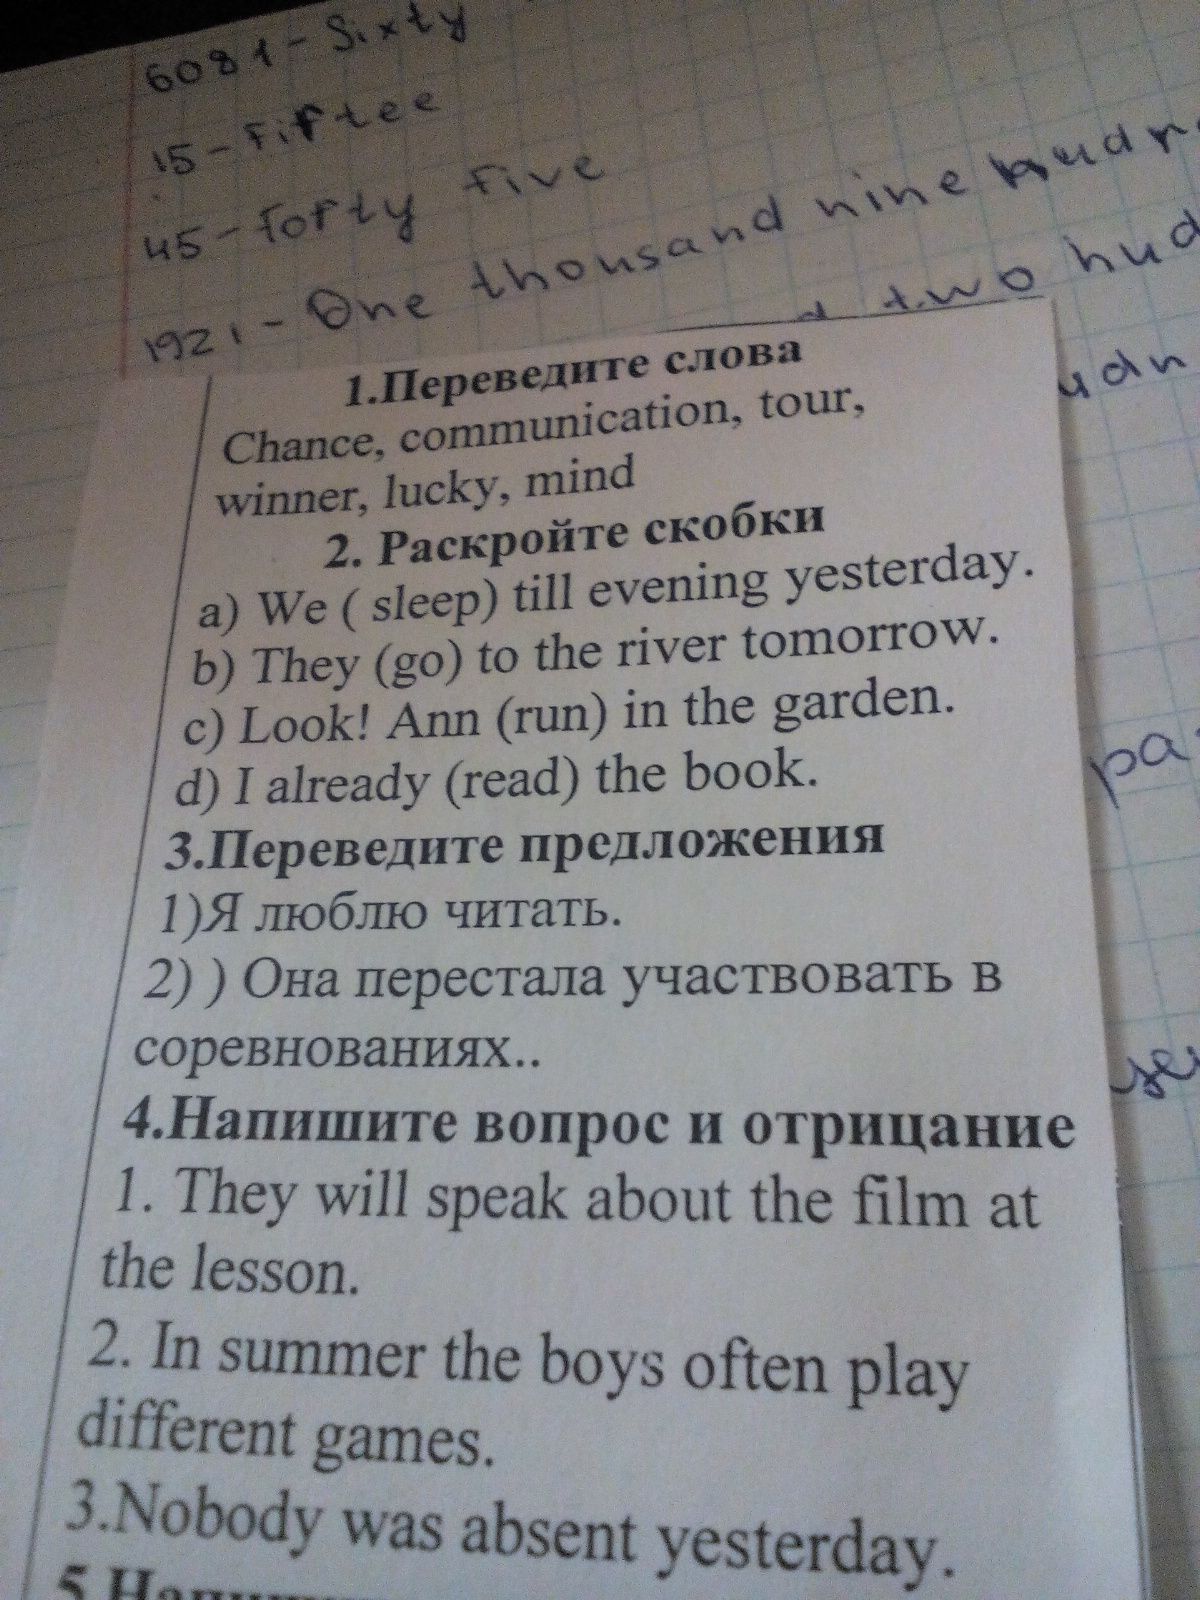 6081 - Sixty
15 - Fiftee
45 - Forty five
1921 - One thousand nine
two
1.Переведите слова
Chance, communication, tour,
winner, lucky, mind
2. Раскройте скобки
a) We ( sleep) till evening yesterday.
b) They (go) to the river tomorrow.
c) Look! Ann (run) in the garden.
d) I already (read) the book.
3.Переведите предложения
1)Я люблю читать.
2) ) Она перестала участвовать в
соревнованиях..
4.Напишите вопрос и отрицание
1. They will speak about the film at
the lesson.
2. In summer the boys often play
different games.
3.Nobody was absent yesterday.